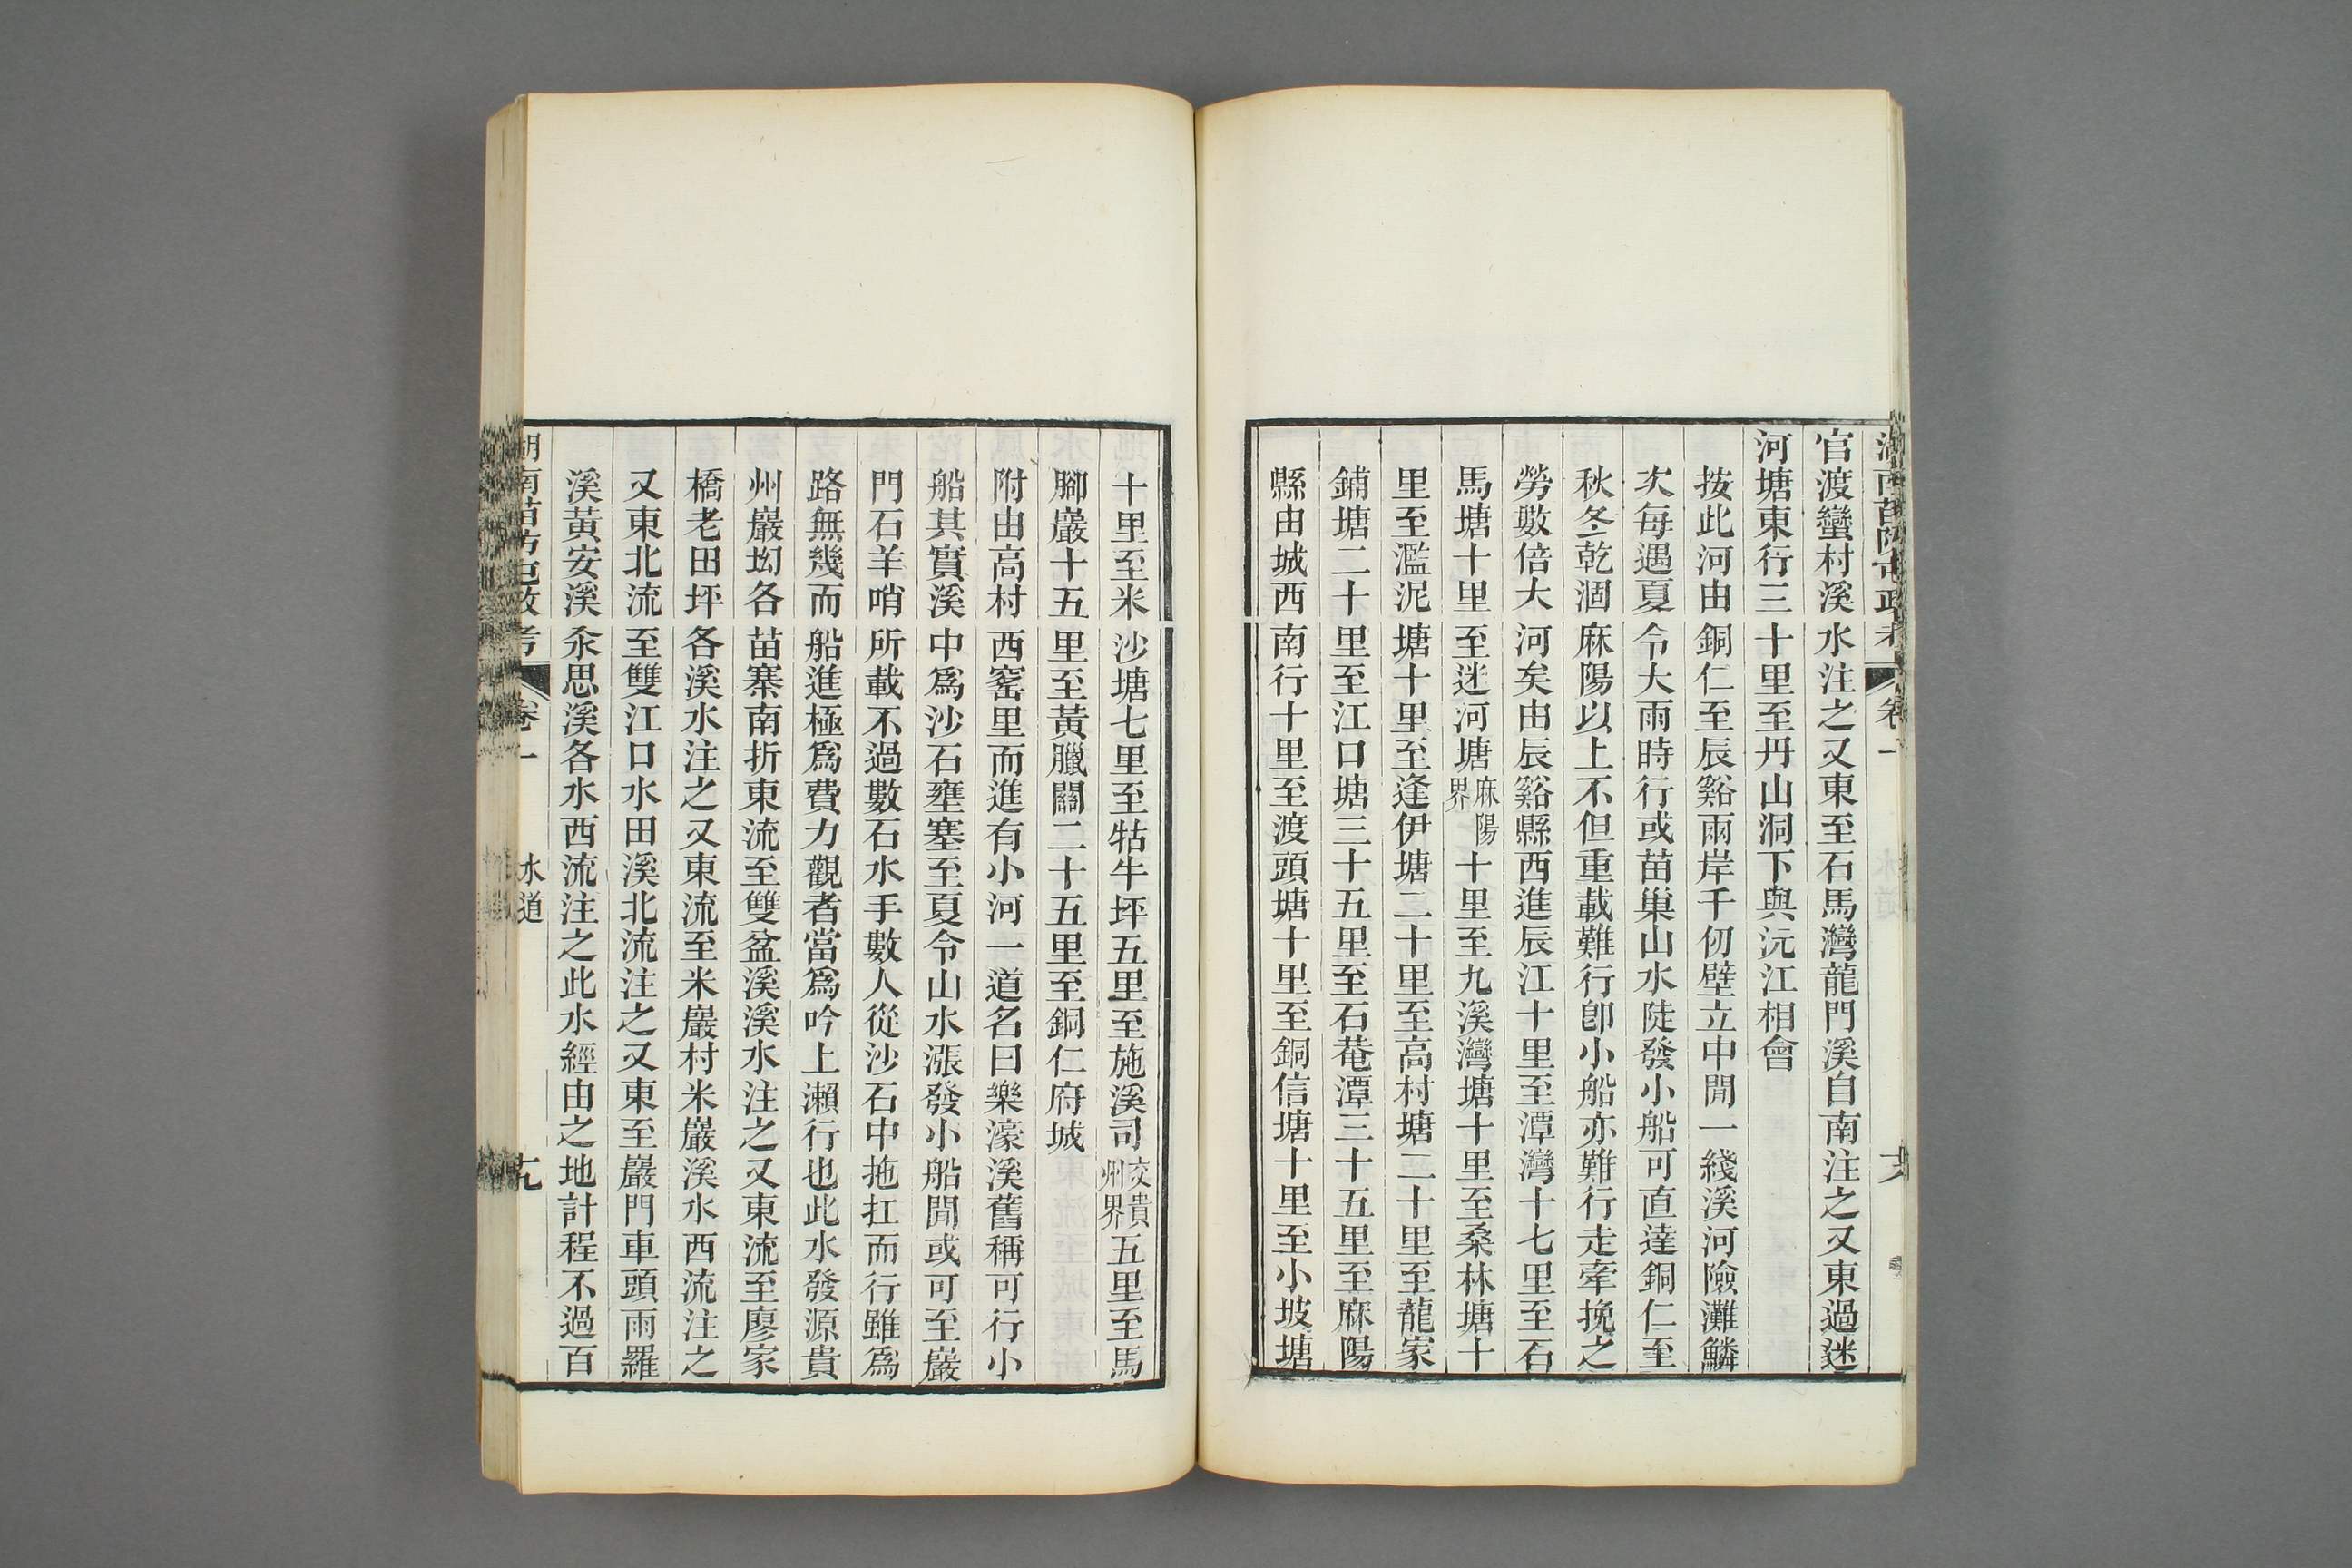 官渡蠻村溪水注之又東至石馬灣龍門溪自南注之又東過迷
河塘東行三十里至丹山洞下與沅江相會
按此河由銅仁至辰谿兩岸千仞壁立中閒一綫溪河險灘鱗
次每遇夏令大雨時行或苗巢山水陡發小船可直達銅仁至
秋冬乾涸麻陽以上不但重載難行卽小船亦難行走牽挽之
勞數倍大河矣由辰谿縣西進辰江十里至潭灣十七里至石
馬塘十里至迷河塘麻陽界十里至九溪灣塘十里至桑林塘十
里至濫泥塘十里至逢伊塘二十里至高村塘二十里至龍家
鋪塘二十里至江口塘三十五里至石菴潭三十五里至麻陽
縣由城西南行十里至渡頭塘十里至銅信塘十里至小坡塘
十里至米沙塘七里至牯牛坪五里至施溪司交貴州界五里至馬
腳巖十五里至黃臘關二十五里至銅仁府城
附由高村西窰里而進有小河一道名曰樂濠溪舊稱可行小
船其實溪中爲沙石壅塞至夏令山水漲發小船閒或可至巖
門石羊哨所載不過數石水手數人從沙石中拖扛而行雖爲
路無幾而船進極爲費力觀者當爲吟上瀨行也此水發源貴
州巖坳各苗寨南折東流至雙盆溪溪水注之又東流至廖家
橋老田坪各溪水注之又東流至米巖村米巖溪水西流注之
又東北流至雙江口水田溪北流注之又東至巖門車頭雨羅
溪黃安溪汆思溪各水西流注之此水經由之地計程不過百
湖南苗防屯政考 卷一 水道 十九